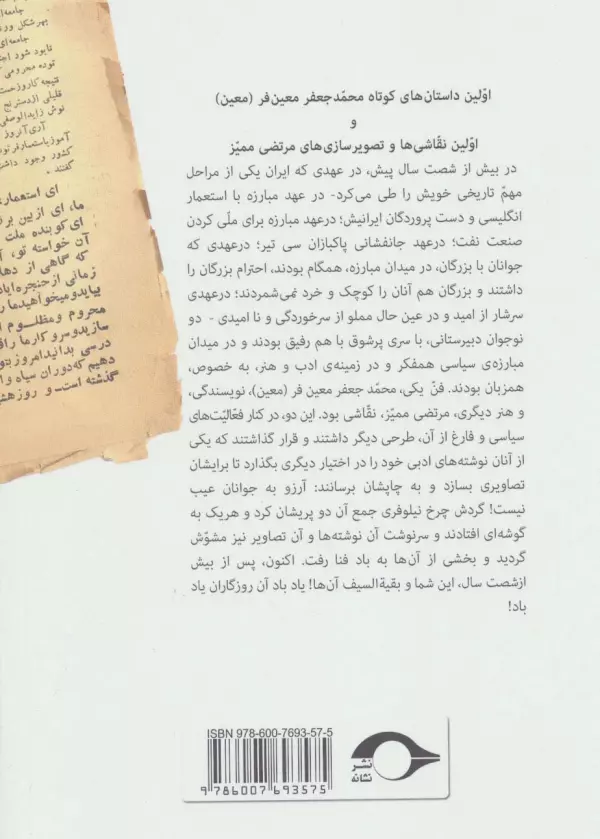 اوّلین داستان‌های کوتاه محمّدجعفر معین‌فر (معین)
و
اوّلین نقّاشی‌ها و تصویرسازی‌های مرتضی ممیّز
در بیش از شصت سال پیش، در عهدی که ایران یکی از مراحل
مهمّ تاریخی خویش را طی می‌کرد- در عهد مبارزه با استعمار
انگلیسی و دست پروردگان ایرانیش؛ درعهد مبارزه برای ملّی کردن
صنعت نفت؛ درعهد جانفشانی پاکبازان سی تیر؛ درعهدی که
جوانان با بزرگان، در میدان مبارزه، همگام بودند، احترام بزرگان را
داشتند و بزرگان هم آنان را کوچک و خرد نمی‌شمردند؛ درعهدی
سرشار از امید و در عین حال مملو از سرخوردگی و نا امیدی - دو
نوجوان دبیرستانی، با سری پرشوق با هم رفیق بودند و در میدان
مبارزه‌ی سیاسی همفکر و در زمینه‌ی ادب و هنر، به خصوص،
همزبان بودند. فنّ یکی، محمّد جعفر معین فر (معین)، نویسندگی،
و هنر دیگری، مرتضی ممیّز، نقّاشی بود. این دو، در کنار فعّالیّت‌های
سیاسی و فارغ از آن، طرحی دیگر داشتند و قرار گذاشتند که یکی
از آنان نوشته‌های ادبی خود را در اختیار دیگری بگذارد تا برایشان
تصاویری بسازد و به چاپشان برسانند: آرزو به جوانان عیب
نیست! گردش چرخ نیلوفری جمع آن دو پریشان کرد و هریک به
گوشه‌ای افتادند و سرنوشت آن نوشته‌ها و آن تصاویر نیز مشوّش
گردید و بخشی از آن‌ها به باد فنا رفت. اکنون، پس از بیش
ازشصت سال، این شما و بقیةالسیف آن‌ها! یاد باد آن روزگاران یاد
باد!
جامعه‌ای
نابود شود
توده محرومی
کشور وجود
گفتند .
ای استعمار
ای کوبنده ملت
آن خواسته تو،
که گاهی از
زمانی ازحنجره
محروم ومظلوم
درسی بدانیدامروز
دهیم که‌دوران سیاه
گذشته است و روز
ISBN 978-600-7693-57-5
9 786007 693575
نشر
نشانه